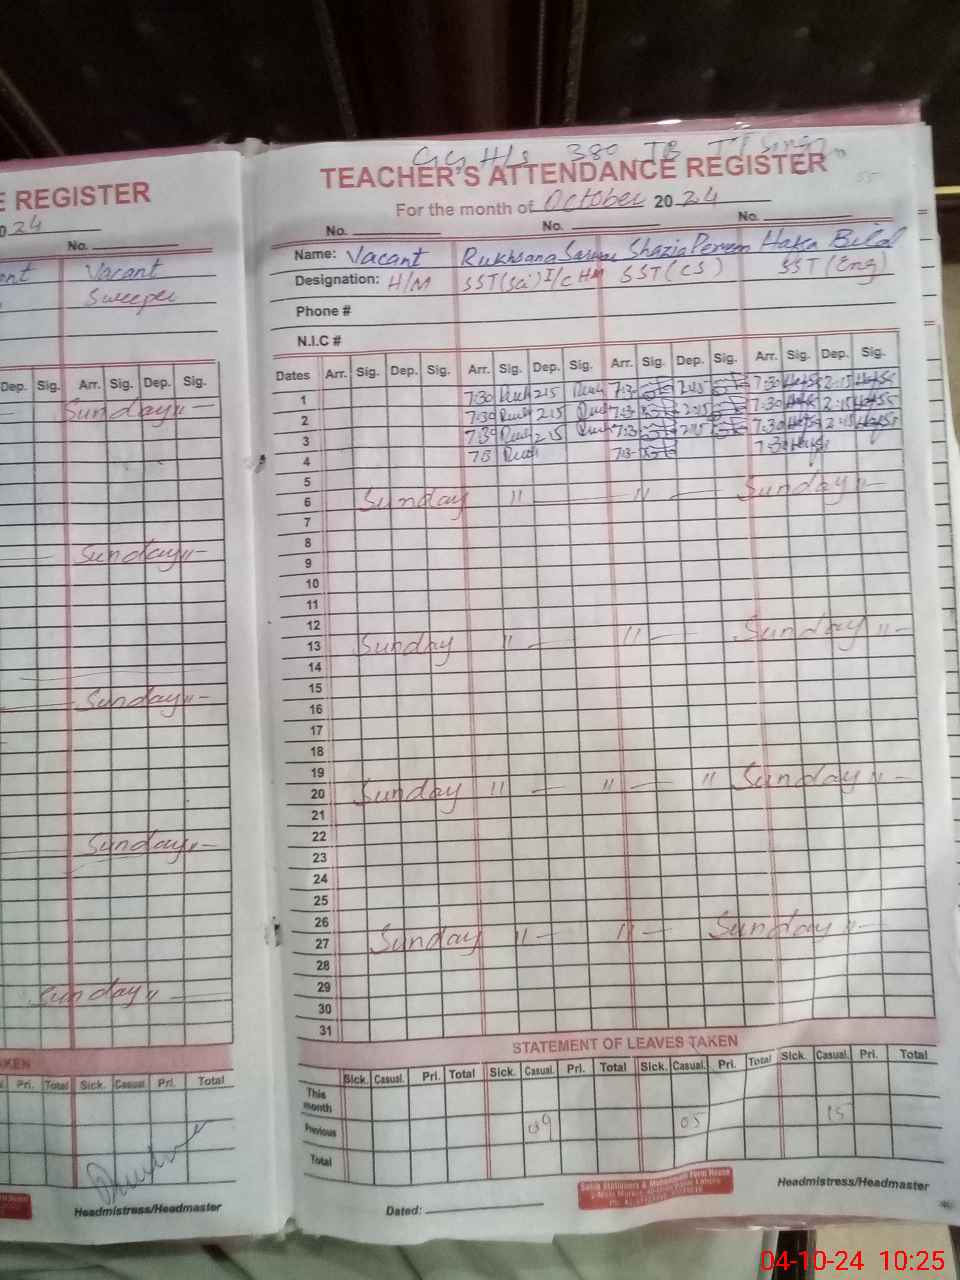 E REGISTER
024
No.
Vacant
Sweeper
Dep. Sig. Arr. Sig. Dep. Sig.
Sunday "
Sunday "
Sunday "
Sunday "
Sunday "
AKEN
Pri. Total Sick. Casual. Pri. Total
Headmistress/Headmaster
TEACHER'S ATTENDANCE REGISTER
For the month of October 2024
No. No. No.
Name: Vacant Rukhsana Shazia Bilal
Designation: H/M SST(Sci) I/C HM SST(CS) SST(Eng)
Phone #
N.I.C #
Dates Arr. Sig. Dep. Sig. Arr. Sig. Dep. Sig. Arr. Sig. Dep. Sig. Arr. Sig. Dep. Sig.
1 7:30 215 7:3 2:15 7:30 2:15
2 7:30 215 7:3 2:15 7:30 2:15
3 7:30 215 7:3 2:15 7:30 2:45
4 7:3 7:3 7:30
5
6 Sunday " " Sunday "
7
8
9
10
11
12
13 Sunday " " Sunday "
14
15
16
17
18
19
20 Sunday " " " Sunday "
21
22
23
24
25
26
27 Sunday " " Sunday "
28
29
30
31
STATEMENT OF LEAVES TAKEN
Sick. Casual. Pri. Total Sick. Casual. Pri. Total Sick. Casual. Pri. Total Sick. Casual. Pri. Total
This month
Previous 09 05 15
Total
Dated:
Headmistress/Headmaster
04-10-24 10:25